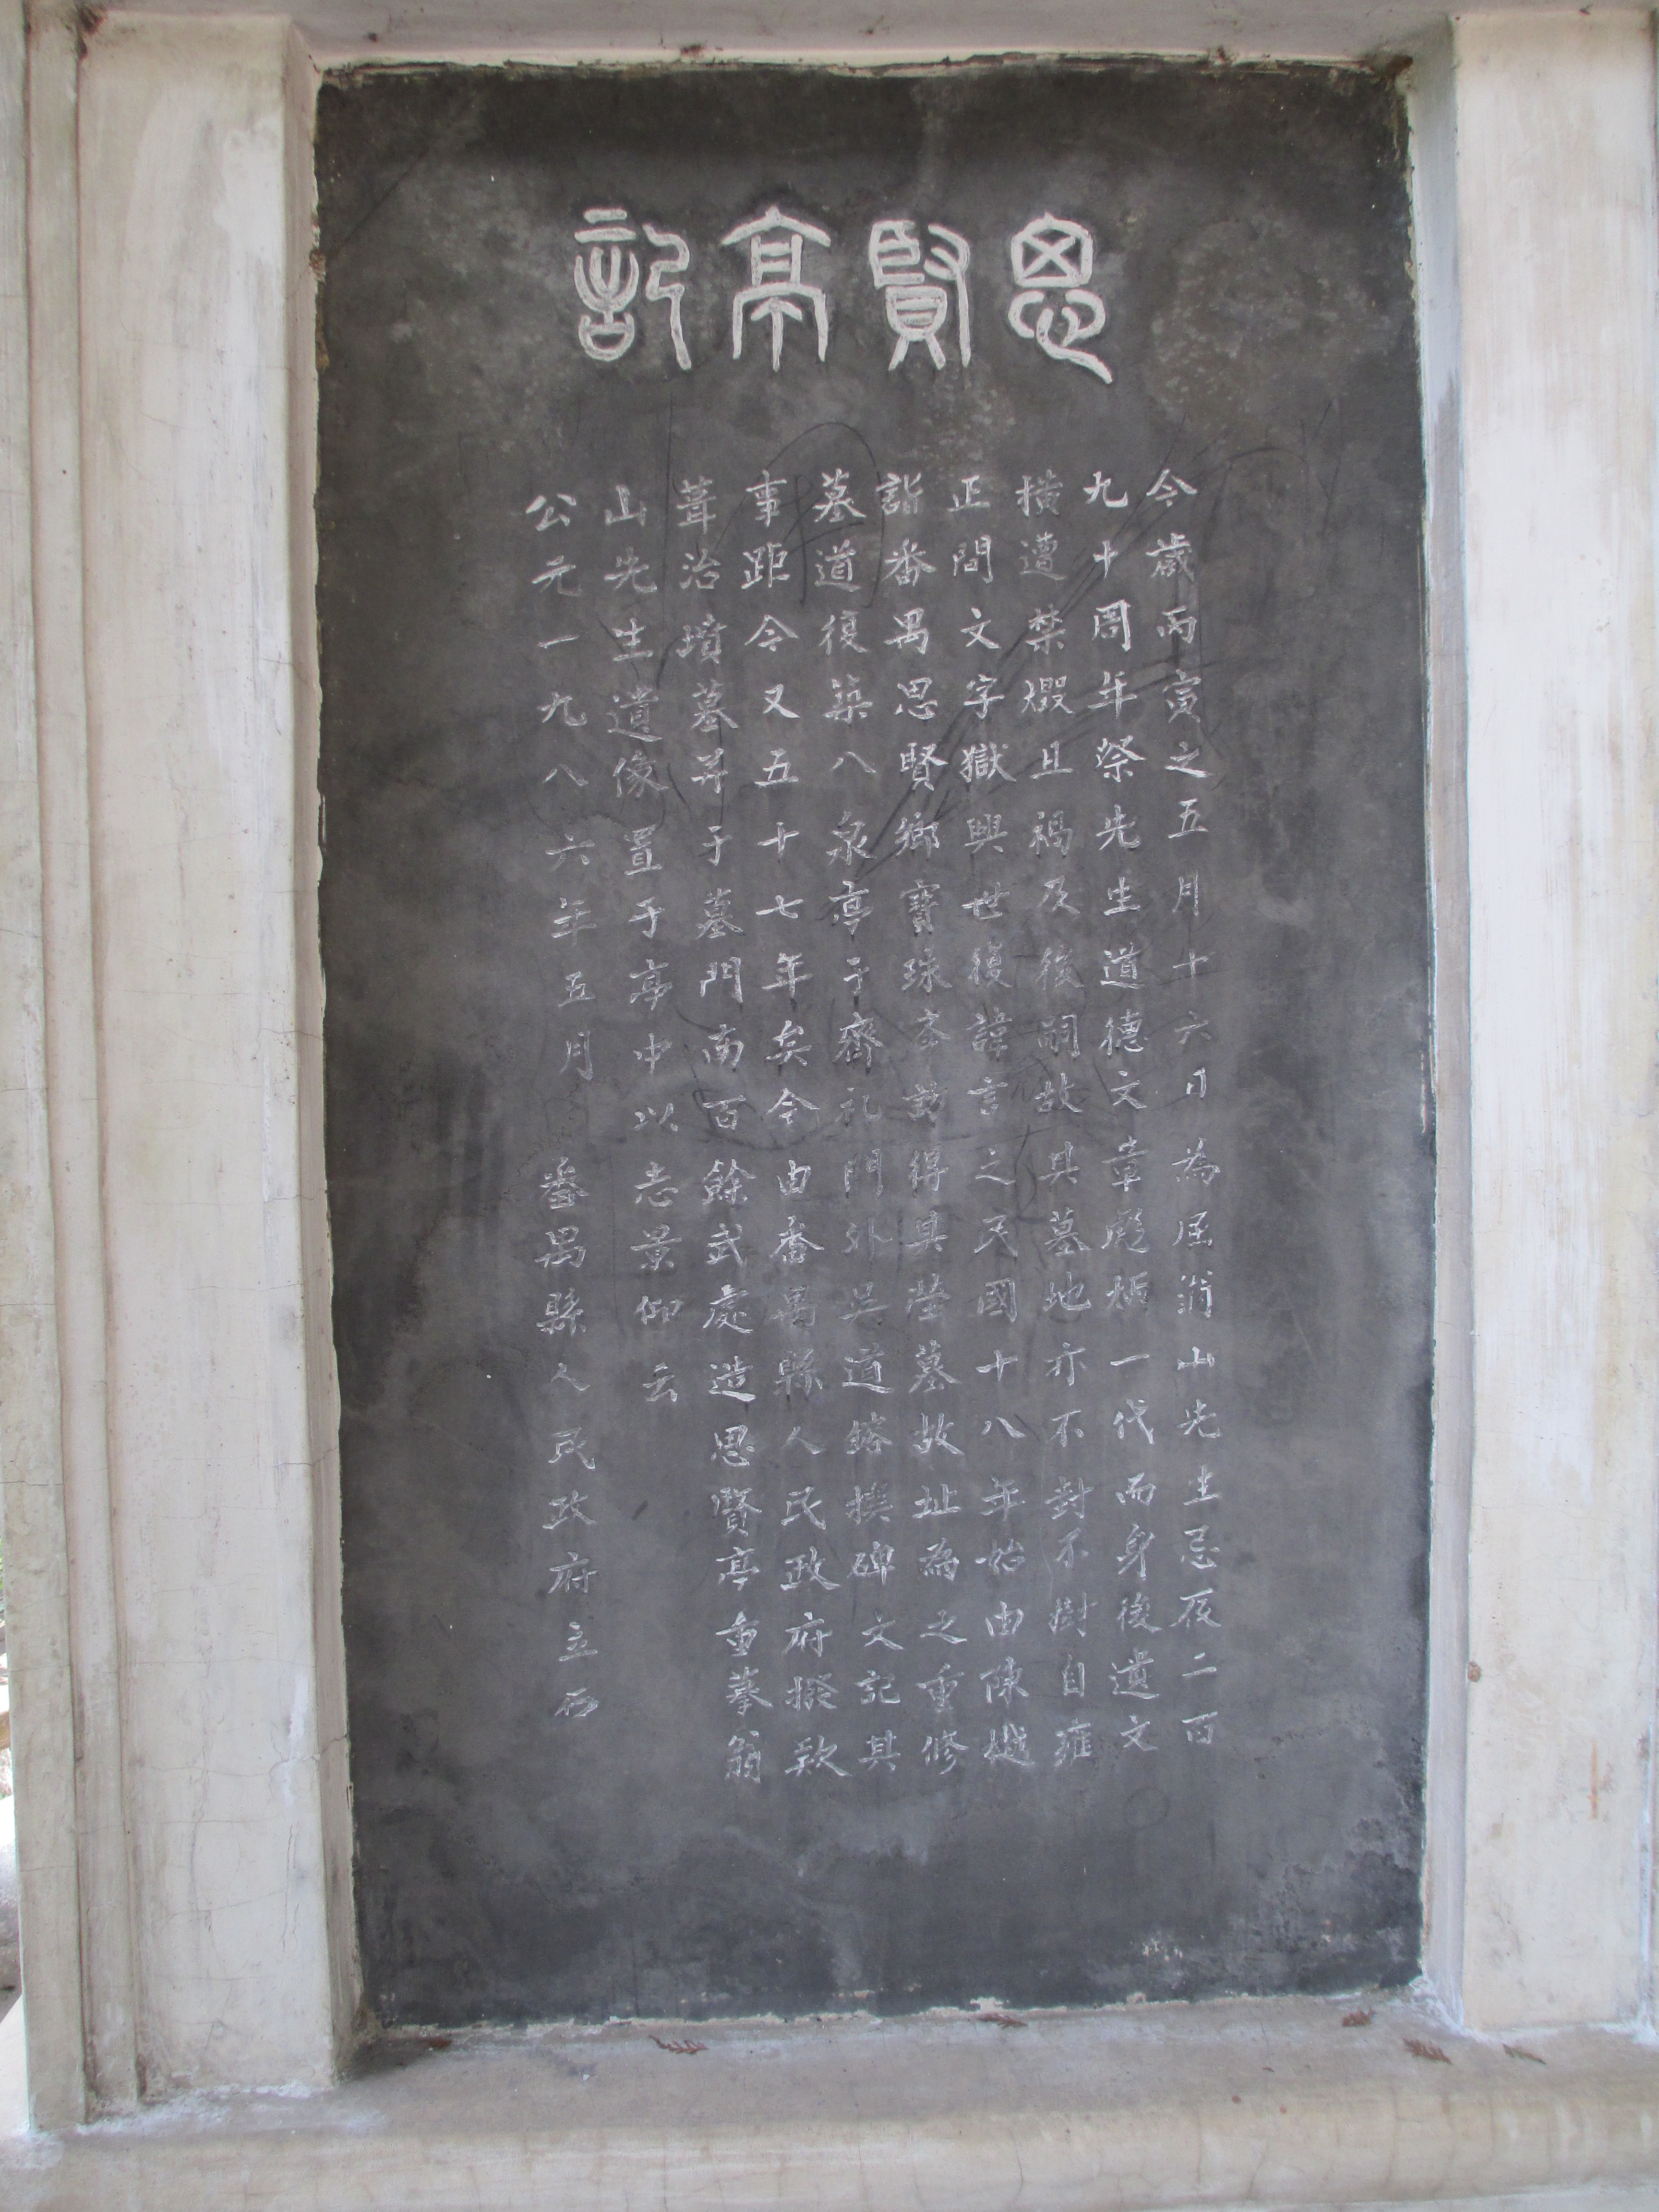 思賢亭記
今歲丙寅之五月十六日為屈翁山先生忌辰二百
九十周年祭先生道德文章彪炳一代而身後遺文
橫遭禁燬且禍及後嗣故其墓地亦不封不樹自雍
正間文字獄興世復諱言之民國十八年始由陳樾
詣番禺思賢鄉寶珠峯訪得其塋墓故址為之重修
墓道復築八泉亭于齊礼門外吳道鎔撰碑文記其
事距今又五十七年矣今由番禺縣人民政府撥款
葺治墳墓并于墓門南百餘武處造思賢亭重摹翁
山先生遺像置于亭中以志景仰云
公元一九八六年五月 番禺縣人民政府立石